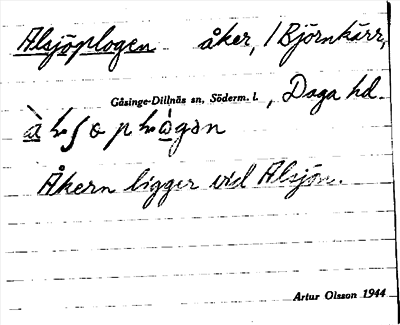 Alsjöplogen åker, / Björnkärr,
Gåsinge-Dillnäs sn, Söderm. l. , Daga hd.
Åkern ligger vid Alsjön.
Artur Olsson 1944